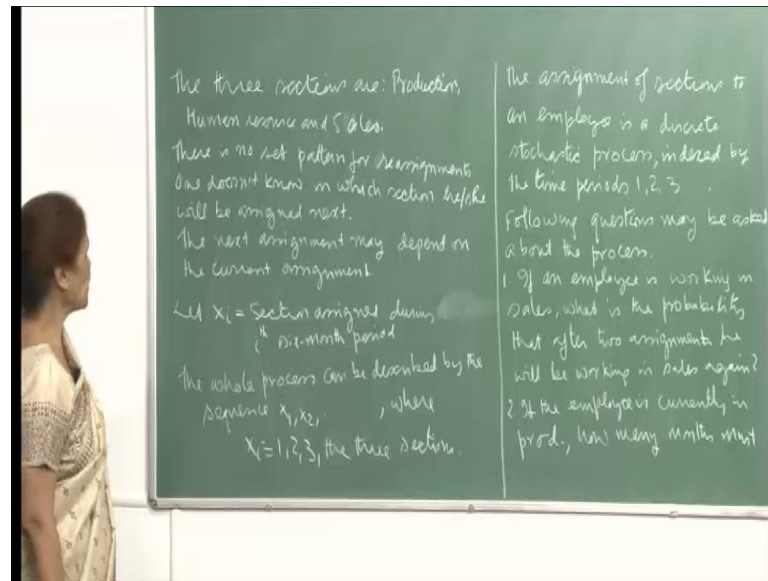 The three sections are: Production,
Human resource and Sales.
There is no set pattern for reassignments
One doesn't know in which section he/she
will be assigned next.
The next assignment may depend on
the current assignment
Let Xi = Section assigned during
ith six-month period
The whole process can be described by the
sequence X1, X2, , where
Xi = 1, 2, 3, the three sections.
The assignment of sections to
an employee is a discrete
stochastic process, indexed by
the time periods 1, 2, 3
Following questions may be asked
about the process.
1. If an employee is working in
sales, what is the probability
that after two assignments he
will be working in sales again?
2. If the employee is currently in
prod., how many months must